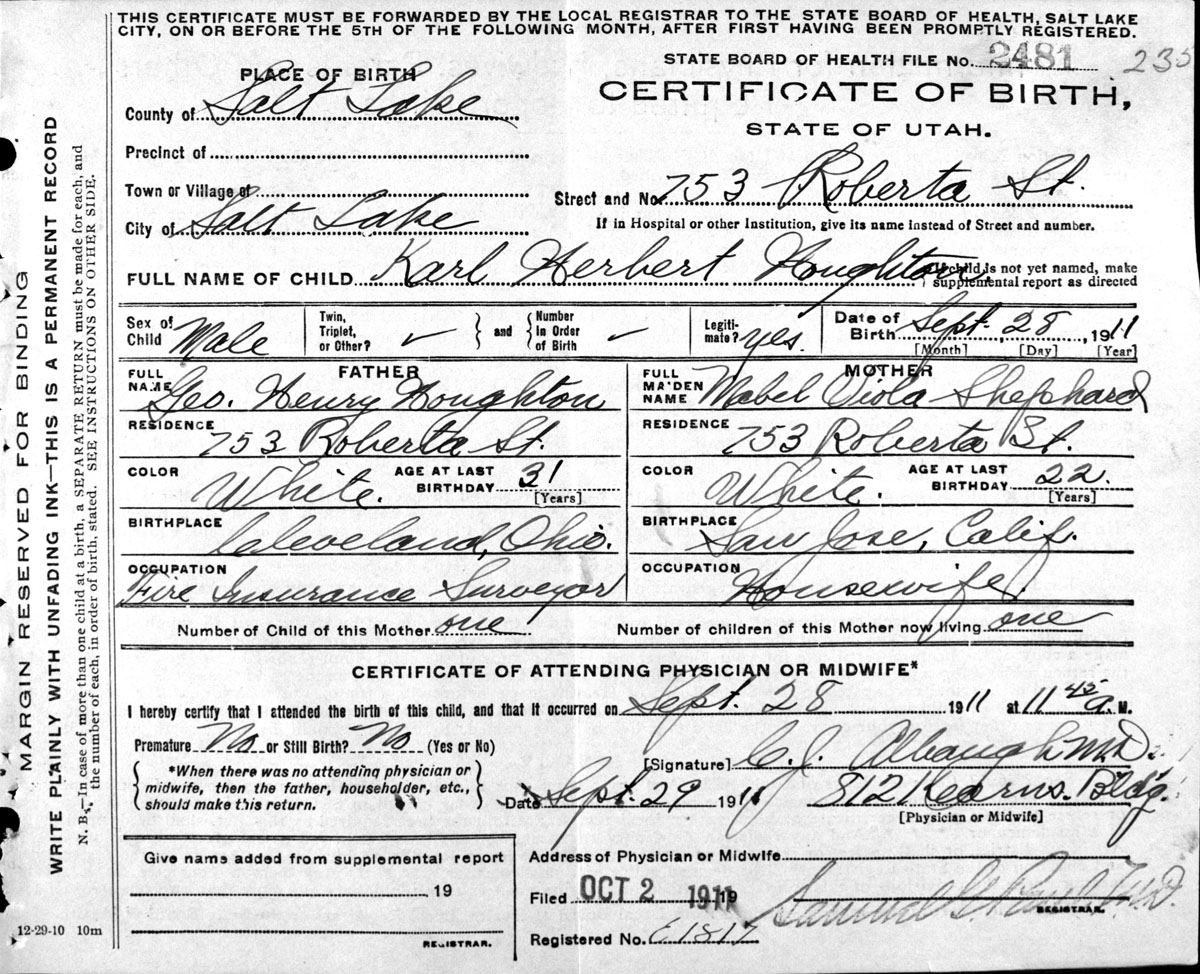 THIS CERTIFICATE MUST BE FORWARDED BY THE LOCAL REGISTRAR TO THE STATE BOARD OF HEALTH, SALT LAKE
CITY, ON OR BEFORE THE 5TH OF THE FOLLOWING MONTH, AFTER FIRST HAVING BEEN PROMPTLY REGISTERED.
STATE BOARD OF HEALTH FILE No. 2481 235
CERTIFICATE OF BIRTH,
STATE OF UTAH.
PLACE OF BIRTH
County of Salt Lake
Precinct of
Town or Village of
City of Salt Lake
Street and No. 753 Roberta St.
If in Hospital or other Institution, give its name instead of Street and number.
FULL NAME OF CHILD Karl Herbert Houghton
If child is not yet named, make
supplemental report as directed
Sex of Child Male
Twin, Triplet, or Other? ✓ and Number in Order of Birth ✓
Legitimate? yes.
Date of Birth Sept. 28, 1911
[Month] [Day] [Year]
FATHER
FULL NAME Geo. Henry Houghton
RESIDENCE 753 Roberta St.
COLOR White. AGE AT LAST BIRTHDAY 31
[Years]
BIRTHPLACE Caleveland, Ohio.
OCCUPATION Fire Insurance Surveyor
MOTHER
FULL MAIDEN NAME Mabel Viola Shephard
RESIDENCE 753 Roberta St.
COLOR White. AGE AT LAST BIRTHDAY 22.
[Years]
BIRTHPLACE San Jose, Calif.
OCCUPATION Housewife.
Number of Child of this Mother one
Number of children of this Mother now living one
CERTIFICATE OF ATTENDING PHYSICIAN OR MIDWIFE*
I hereby certify that I attended the birth of this child, and that it occurred on Sept. 28 1911 at 11 45 a. M.
Premature No or Still Birth? No (Yes or No)
*When there was no attending physician or
midwife, then the father, householder, etc.,
should make this return.
[Signature] C. J. Albaugh M.D.
Date Sept. 29 1911 812 Kearns. Bldg.
[Physician or Midwife]
Give name added from supplemental report
19
REGISTRAR.
12-29-10 10m
Address of Physician or Midwife
Filed OCT 2 1911 19
Samuel G. M.D.
REGISTRAR.
Registered No. 1817
MARGIN RESERVED FOR BINDING
WRITE PLAINLY WITH UNFADING INK—THIS IS A PERMANENT RECORD
N. B.—In case of more than one child at a birth, a SEPARATE RETURN must be made for each, and
the number of each, in order of birth, stated. SEE INSTRUCTIONS ON OTHER SIDE.